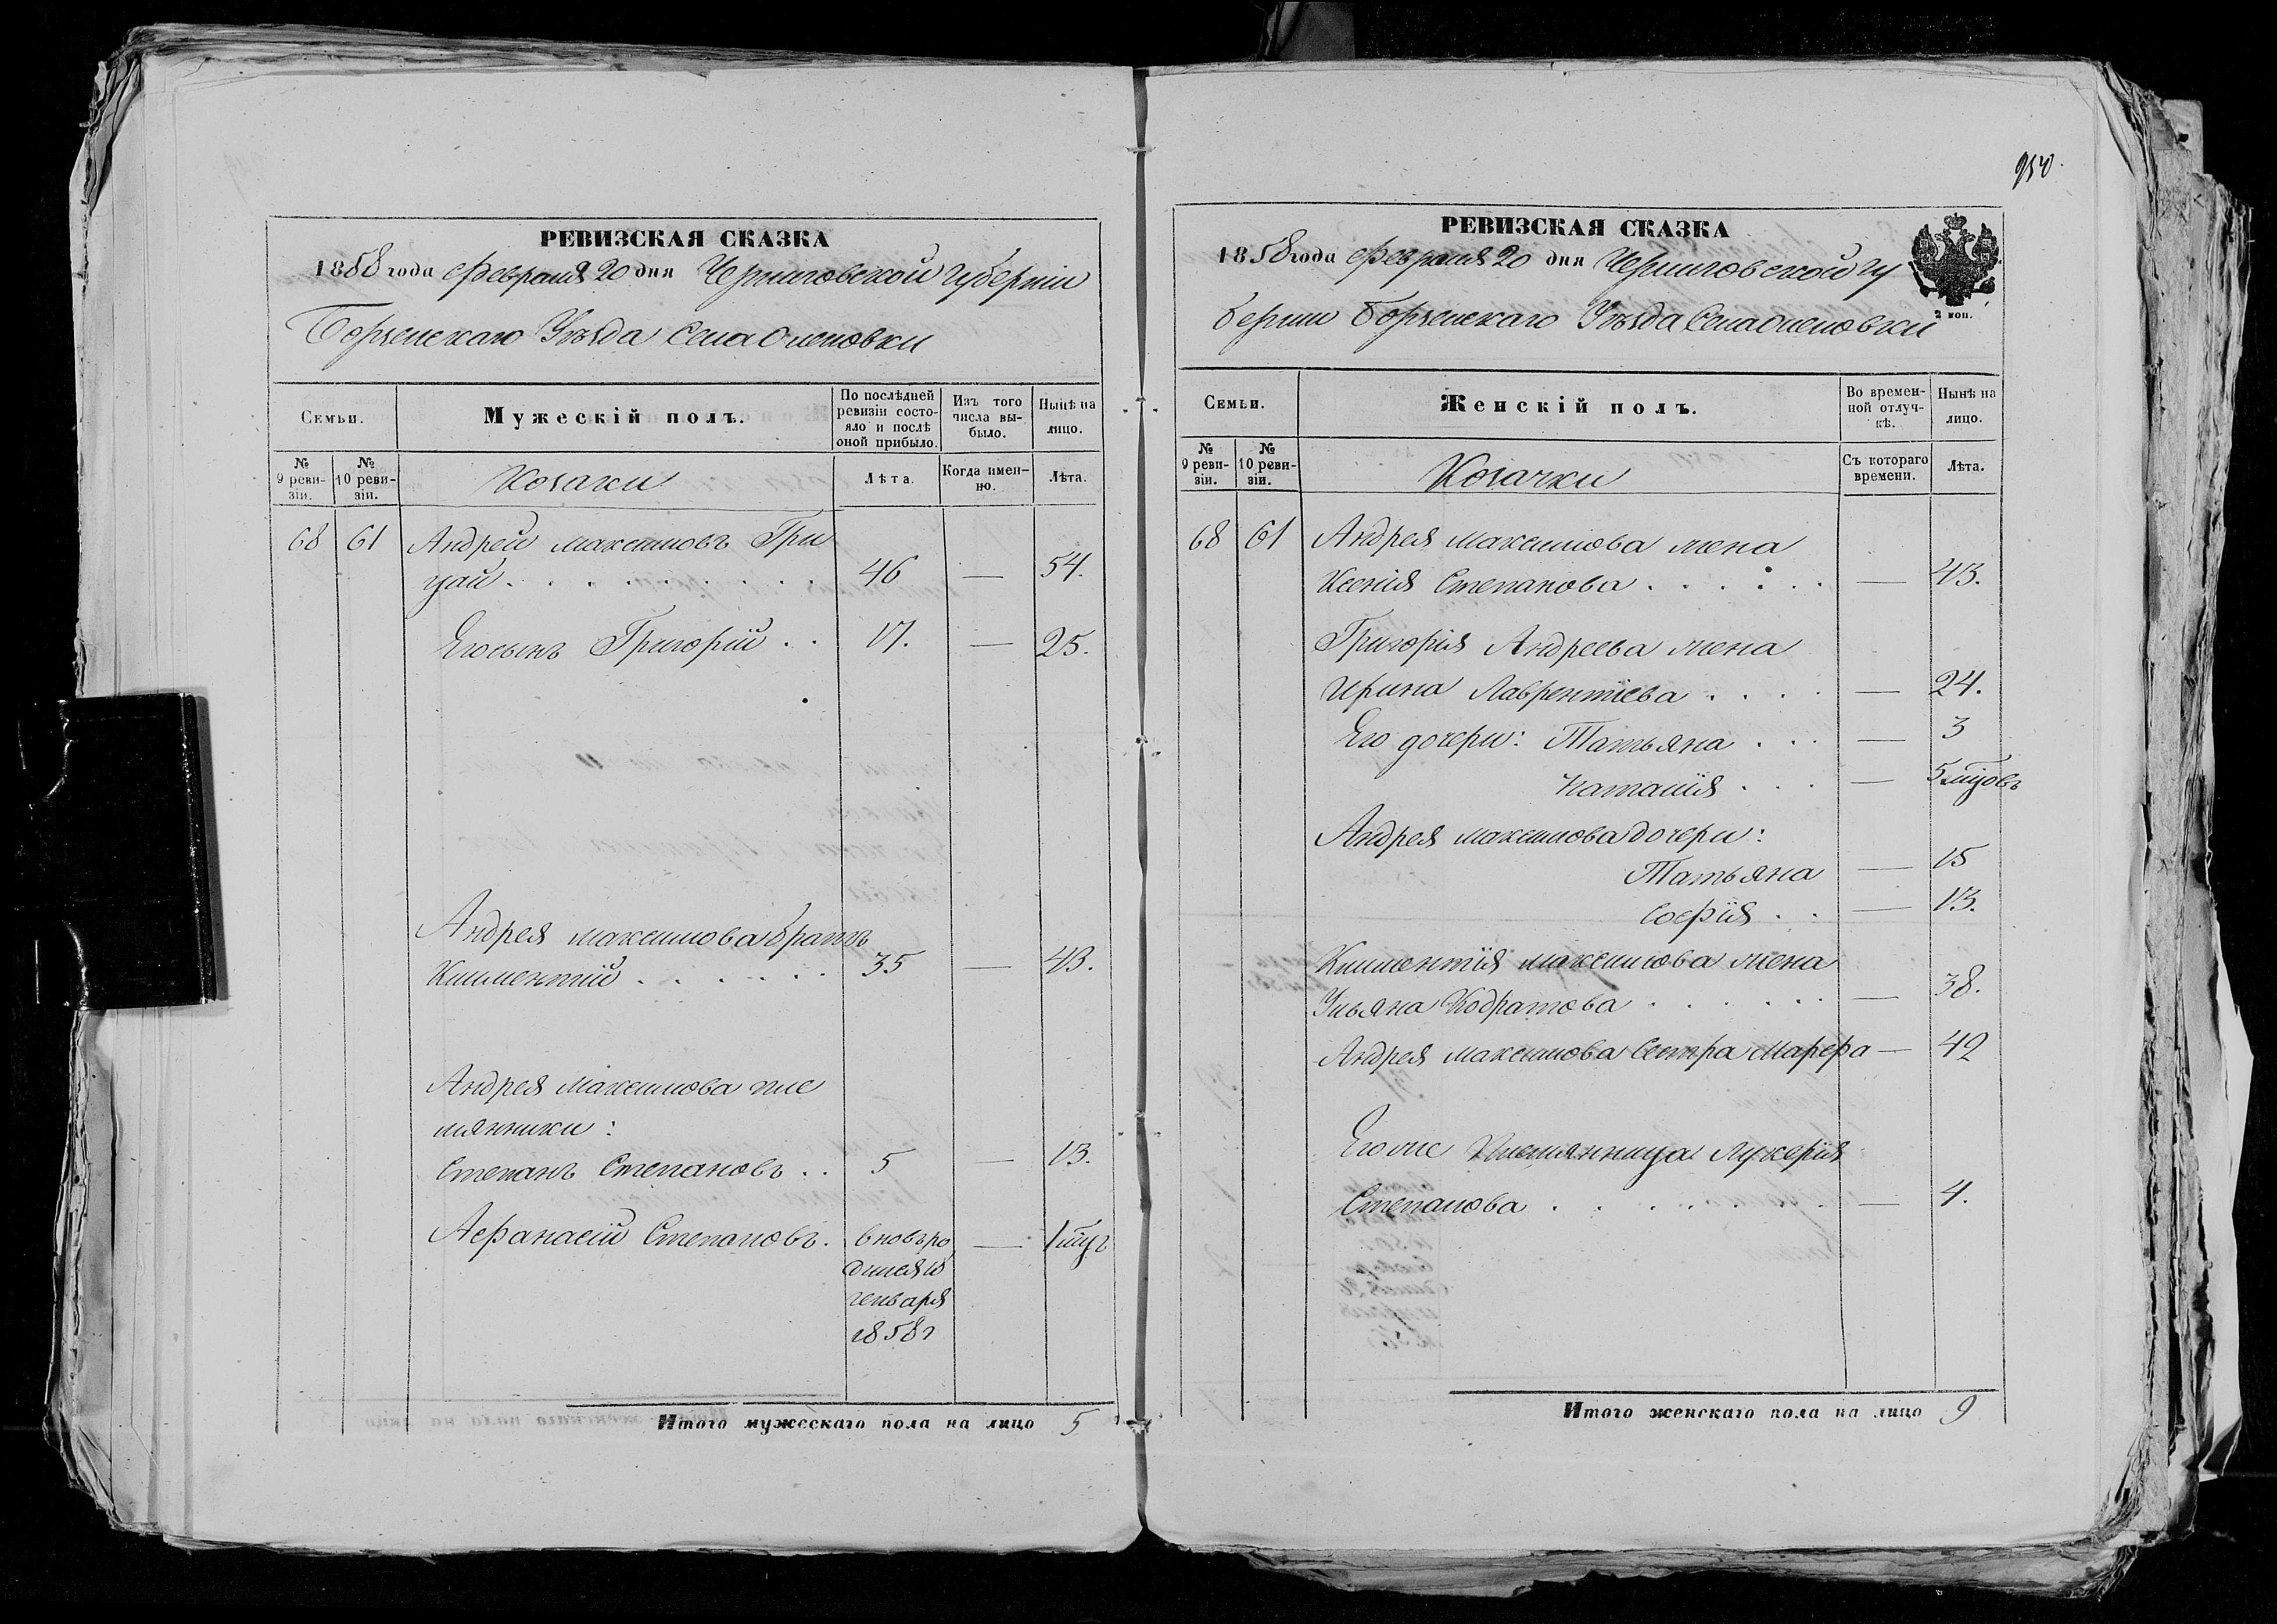 РЕВИЗСКАЯ СКАЗКА
1858 года Февраля 20 дня Черниговской губерніи
Борзенскаго Уѣзда Села Оленовки
Семьи.
Мужескій полъ.
По послѣдней ревизіи состояло и послѣ оной прибыло.
Изъ того числа выбыло.
Нынѣ на лицо.
№ 9 ревизіи.
№ 10 ревизіи.
Козаки
Лѣта.
Когда именно.
Лѣта.
68 61 Андрей Максимовъ Гри
цай . . . . . . . . . 46 — 54.
Его сынъ Григорій . . 17. — 25.
Андрея Максимова братъ
Климентій . . . . . . 35 — 43.
Андрея Максимова пле
мянники:
Степанъ Степановъ . . 5 — 13.
Афанасій Степановъ. вновь ро — 1 мѣц
дился 10
генваря
1858 г
Итого мужескаго пола на лицо 5
950.
РЕВИЗСКАЯ СКАЗКА
1858 года Февраля 20 дня Черниговской гу
берніи Борзенскаго Уѣзда Села Оленовки
2 коп.
Семьи.
Женскій полъ.
Во временной отлучкѣ.
Нынѣ на лицо.
№ 9 ревизіи.
№ 10 ревизіи.
Козачки
Съ котораго времени.
Лѣта.
68 61 Андрея Максимова жена
Ксенія Степанова . . . . . . — 43.
Григорія Андреева жена
Ирина Лаврентіева . . . . — 24.
Его дочери: Татьяна . . . — 3
Наталія . . . — 5 мѣцовъ
Андрея Максимова дочери:
Татьяна — 15
Софія . . — 13.
Климентія Максимова жена
Ульяна Кодратова . . . . . . — 38.
Андрея Максимова Сестра Марфа — 42
Его же Племянница Лукерія
Степанова . . . . . . . — 4.
Итого женскаго пола на лицо 9